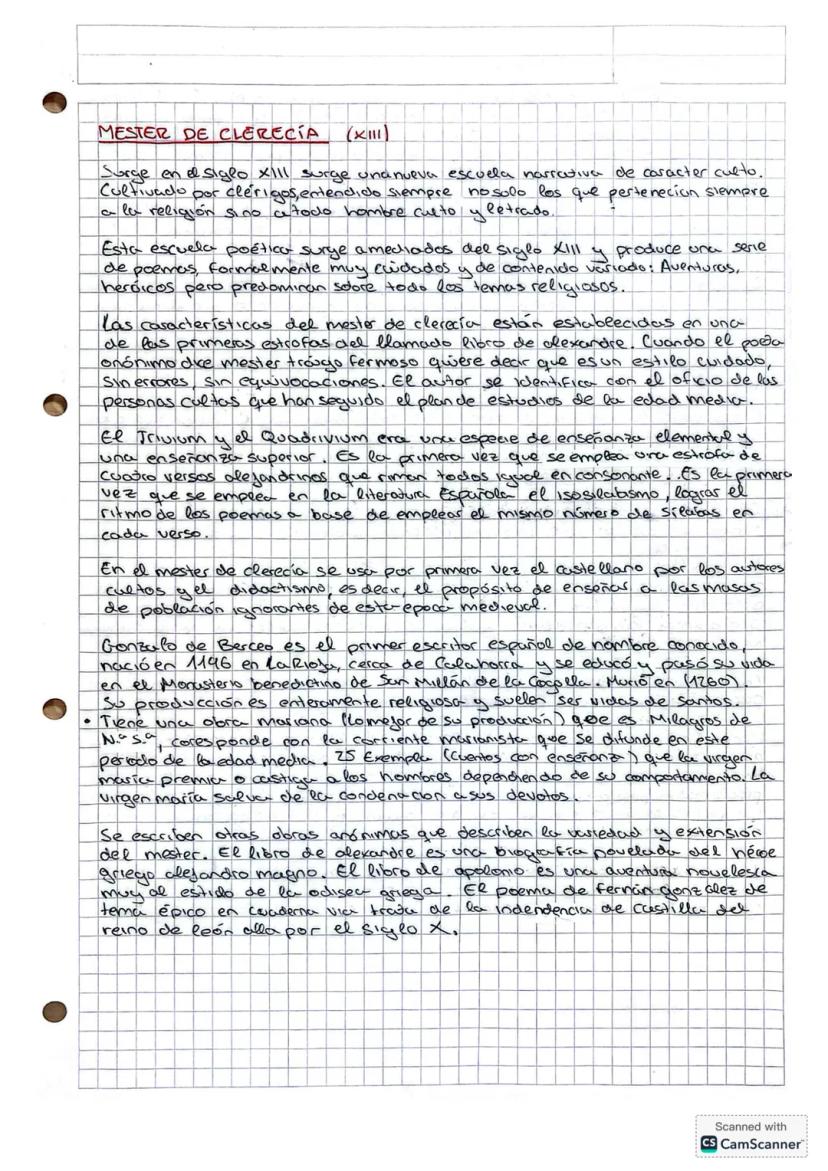 MESTER DE CLERECÍA (XIII)
Surge en el siglo XIII surge una nueva escuela narrativa de caracter culto.
Cultivado por clérigos, entendido siempre no solo los que pertenecian siempre
a la religión sino a todo hombre culto y letrado.
Esta escuela poética surge a mediados del siglo XIII y produce una serie
de poemas, formalmente muy cuidados y de contenido variado: Aventuras,
heróicos pero predominan sobre todo los temas religiosos.
Las características del mester de clerecía están establecidas en una
de las primeras estrofas del llamado libro de alexandre. Cuando el poeta
anónimo dice mester traygo fermoso quiere decir que es un estilo cuidado,
sin errores, sin equivocaciones. El autor se identifica con el oficio de las
personas cultas que han seguido el plan de estudios de la edad media.
El Trivium y el Quadrivium era una especie de enseñanza elemental y
una enseñanza superior. Es la primera vez que se emplea una estrofa de
cuatro versos alejandrinos que riman todos igual en consonante. Es la primera
vez que se emplea en la literatura Española el isosilabismo, lograr el
ritmo de los poemas a base de emplear el mismo número de sílabas en
cada verso.
En el mester de clerecía se usa por primera vez el castellano por los autores
cultos y el didactismo, es decir, el propósito de enseñar a las masas
de población ignorantes de esta época medieval.
Gonzalo de Berceo es el primer escritor español de nombre conocido,
nació en 1196 en La Rioja, cerca de Calahorra y se educó y pasó su vida
en el Monasterio benedictino de San Millán de la Cogolla. Murió en (1260).
Su producción es enteramente religiosa y suelen ser vidas de santos.
• Tiene una obra mariana (lo mejor de su producción) que es Milagros de
N.ª S.ª, coresponde con la corriente marianista que se difunde en este
período de la edad media. 25 Exempla (cuentos con enseñanza) que la virgen
maría premia o castiga a los hombres dependiendo de su comportamiento. La
virgen maría salva de la condenacion a sus devotos.
Se escriben otras obras anónimas que describen la variedad y extensión
del mester. El libro de alexandre es una biografía novelada del héroe
griego alejandro magno. El libro de apolonio es una aventura novelesca
muy al estilo de la odisea griega. El poema de fernán gonzález de
tema épico en cuaderna via trata de la indendencia de castilla del
reino de león alla por el siglo X.
Scanned with
CS CamScanner